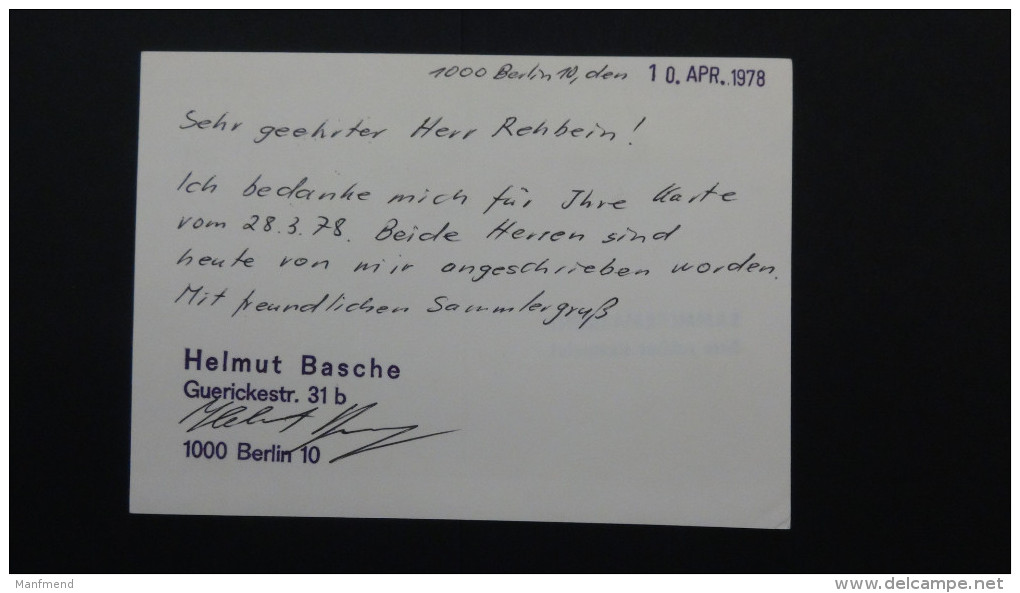 1000 Berlin 10, den 10. APR. 1978
Sehr geehrter Herr Rehbein!
Ich bedanke mich für Ihre Karte
vom 28.3.78. Beide Herren sind
heute von mir angeschrieben worden.
Mit freundlichen Sammlergruß
Helmut Basche
Guerickestr. 31 b
1000 Berlin 10
Manfmend
www.delcampe.net